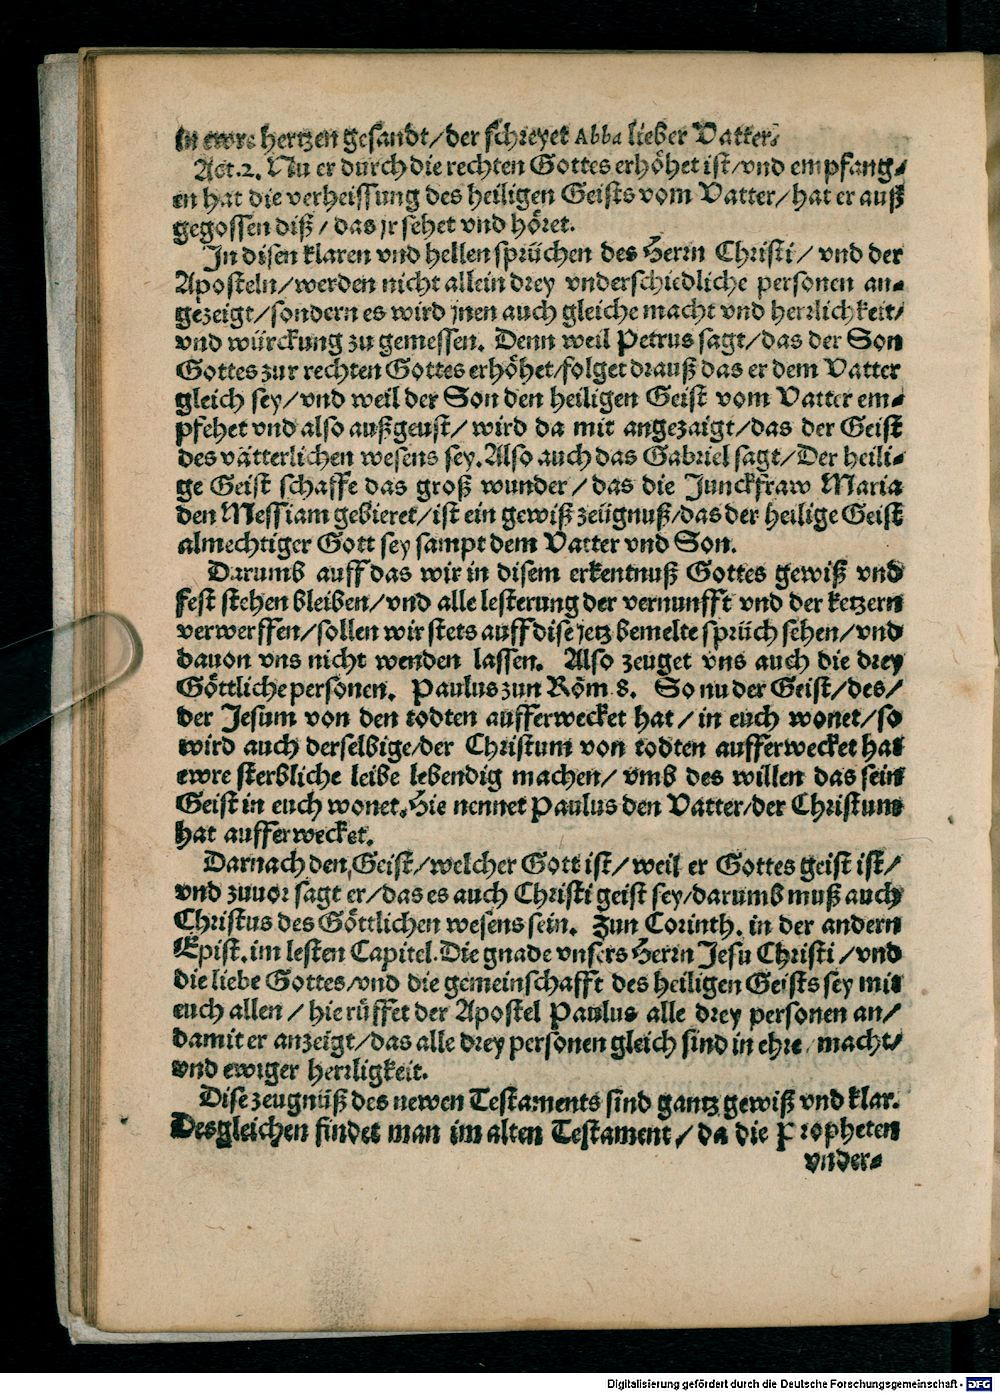 in ewre hertzen gesandt/der schreyet Abba lieber Vatter.
Act.2. Nu er durch die rechten Gottes erhöhet ist/vnd empfang-
en hat die verheissung des heiligen Geists vom Vatter/hat er auß
gegossen diß/das jr sehet vnd höret.
In disen klaren vnd hellen sprüchen des Herrn Christi/vnd der
Aposteln/werden nicht allein drey vnderschiedliche personen an-
gezeigt/sondern es wird jnen auch gleiche macht vnd herrlichkeit/
vnd würckung zu gemessen. Denn weil Petrus sagt/das der Son
Gottes zur rechten Gottes erhöhet/folget drauß das er dem Vatter
gleich sey/vnd weil der Son den heiligen Geist vom Vatter em-
pfehet vnd also außgeust/wird da mit angezaigt/das der Geist
des vätterlichen wesens sey. Also auch das Gabriel sagt/Der heili-
ge Geist schaffe das groß wunder/das die Junckfraw Maria
den Messiam gebieret/ist ein gewiß zeügnuß/das der heilige Geist
almechtiger Gott sey sampt dem Vatter vnd Son.
Darumb auff das wir in disem erkentnuß Gottes gewiß vnd
fest stehen bleiben/vnd alle lesterung der vernunfft vnd der ketzern
verwerffen/sollen wir stets auff dise jetz bemelte sprüch sehen/vnd
dauon vns nicht wenden lassen. Also zeuget vns auch die drey
Göttliche personen. Paulus zun Röm 8. So nu der Geist/des/
der Jesum von den todten aufferwecket hat/in euch wonet/so
wird auch derselbige/der Christum von todten aufferwecket hat
ewre sterbliche leibe lebendig machen/vmb des willen das sein
Geist in euch wonet. Hie nennet Paulus den Vatter/der Christum
hat aufferwecket.
Darnach den Geist/welcher Gott ist/weil er Gottes geist ist/
vnd zuuor sagt er/das es auch Christi geist sey/darumb muß auch
Christus des Göttlichen wesens sein. Zun Corinth. in der andern
Epist. im lesten Capitel. Die gnade vnsers Herrn Jesu Christi/vnd
die liebe Gottes/vnd die gemeinschafft des heiligen Geists sey mit
euch allen/hie rüffet der Apostel Paulus alle drey personen an/
damit er anzeigt/das alle drey personen gleich sind in ehre/macht/
vnd ewiger herrligkeit.
Dise zeugnüß des newen Testaments sind gantz gewiß vnd klar.
Desgleichen findet man im alten Testament/da die Propheten
vnder-
Digitalisierung gefördert durch die Deutsche Forschungsgemeinschaft - DFG